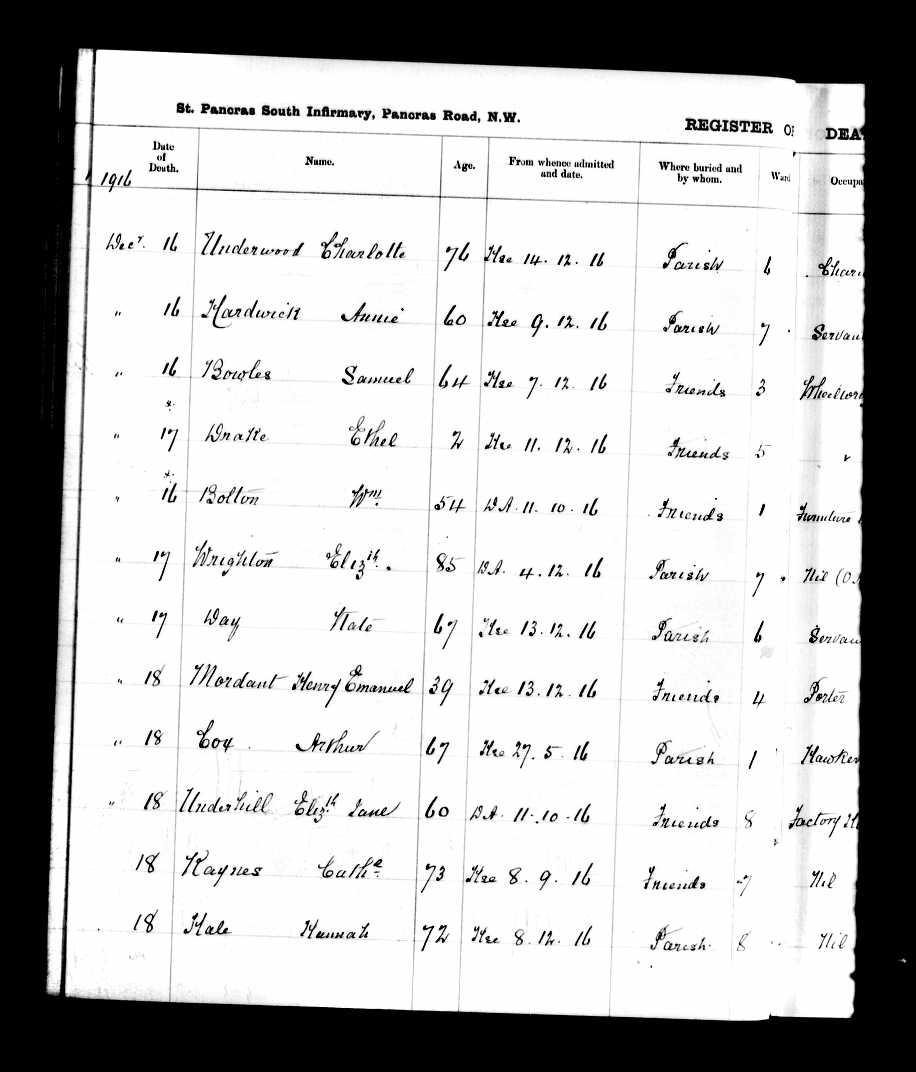 St. Pancras South Infirmary, Pancras Road, N.W.
REGISTER OF DEA
Date of Death. Name. Age. From whence admitted and date. Where buried and by whom. Ward Occupa
1916
Decr. 16 Underwood Charlotte 76 Hse 14. 12. 16 Parish 6 Char
" 16 Hardwick Annie 60 Hse 9. 12. 16 Parish 7 Servan
" 16 Bowles Samuel 64 Hse 7. 12. 16 Friends 3 Wheelwrig
" 17 Drake Ethel 2 Hse 11. 12. 16 Friends 5 "
" 16 Bolton Wm. 54 D.A. 11. 10. 16 Friends 1 Furniture
" 17 Wrighton Elizth. 85 D.A. 4. 12. 16 Parish 7 Nil (O.
" 17 Day Kate 67 Hse 13. 12. 16 Parish 6 Servan
" 18 Mordaunt Henry Emanuel 39 Hse 13. 12. 16 Friends 4 Porter
" 18 Cox Arthur 67 Hse 27. 5. 16 Parish 1 Hawker
" 18 Underhill Elizth Jane 60 D.A. 11. 10. 16 Friends 8 Factory H
18 Haynes Cathe 73 Hse 8. 9. 16 Friends 7 Nil
18 Hale Hannah 72 Hse 8. 12. 16 Parish 8 Nil